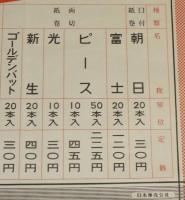 種類名
口付紙巻
朝日 20本入 三〇円
富士 20本入 一二〇円
両切紙巻
ピース 50本入 二二五円
10本入 四五円
光 10本入 三〇円
新生 20本入 四〇円
ゴールデンバット 20本入 三〇円
日本專賣公社